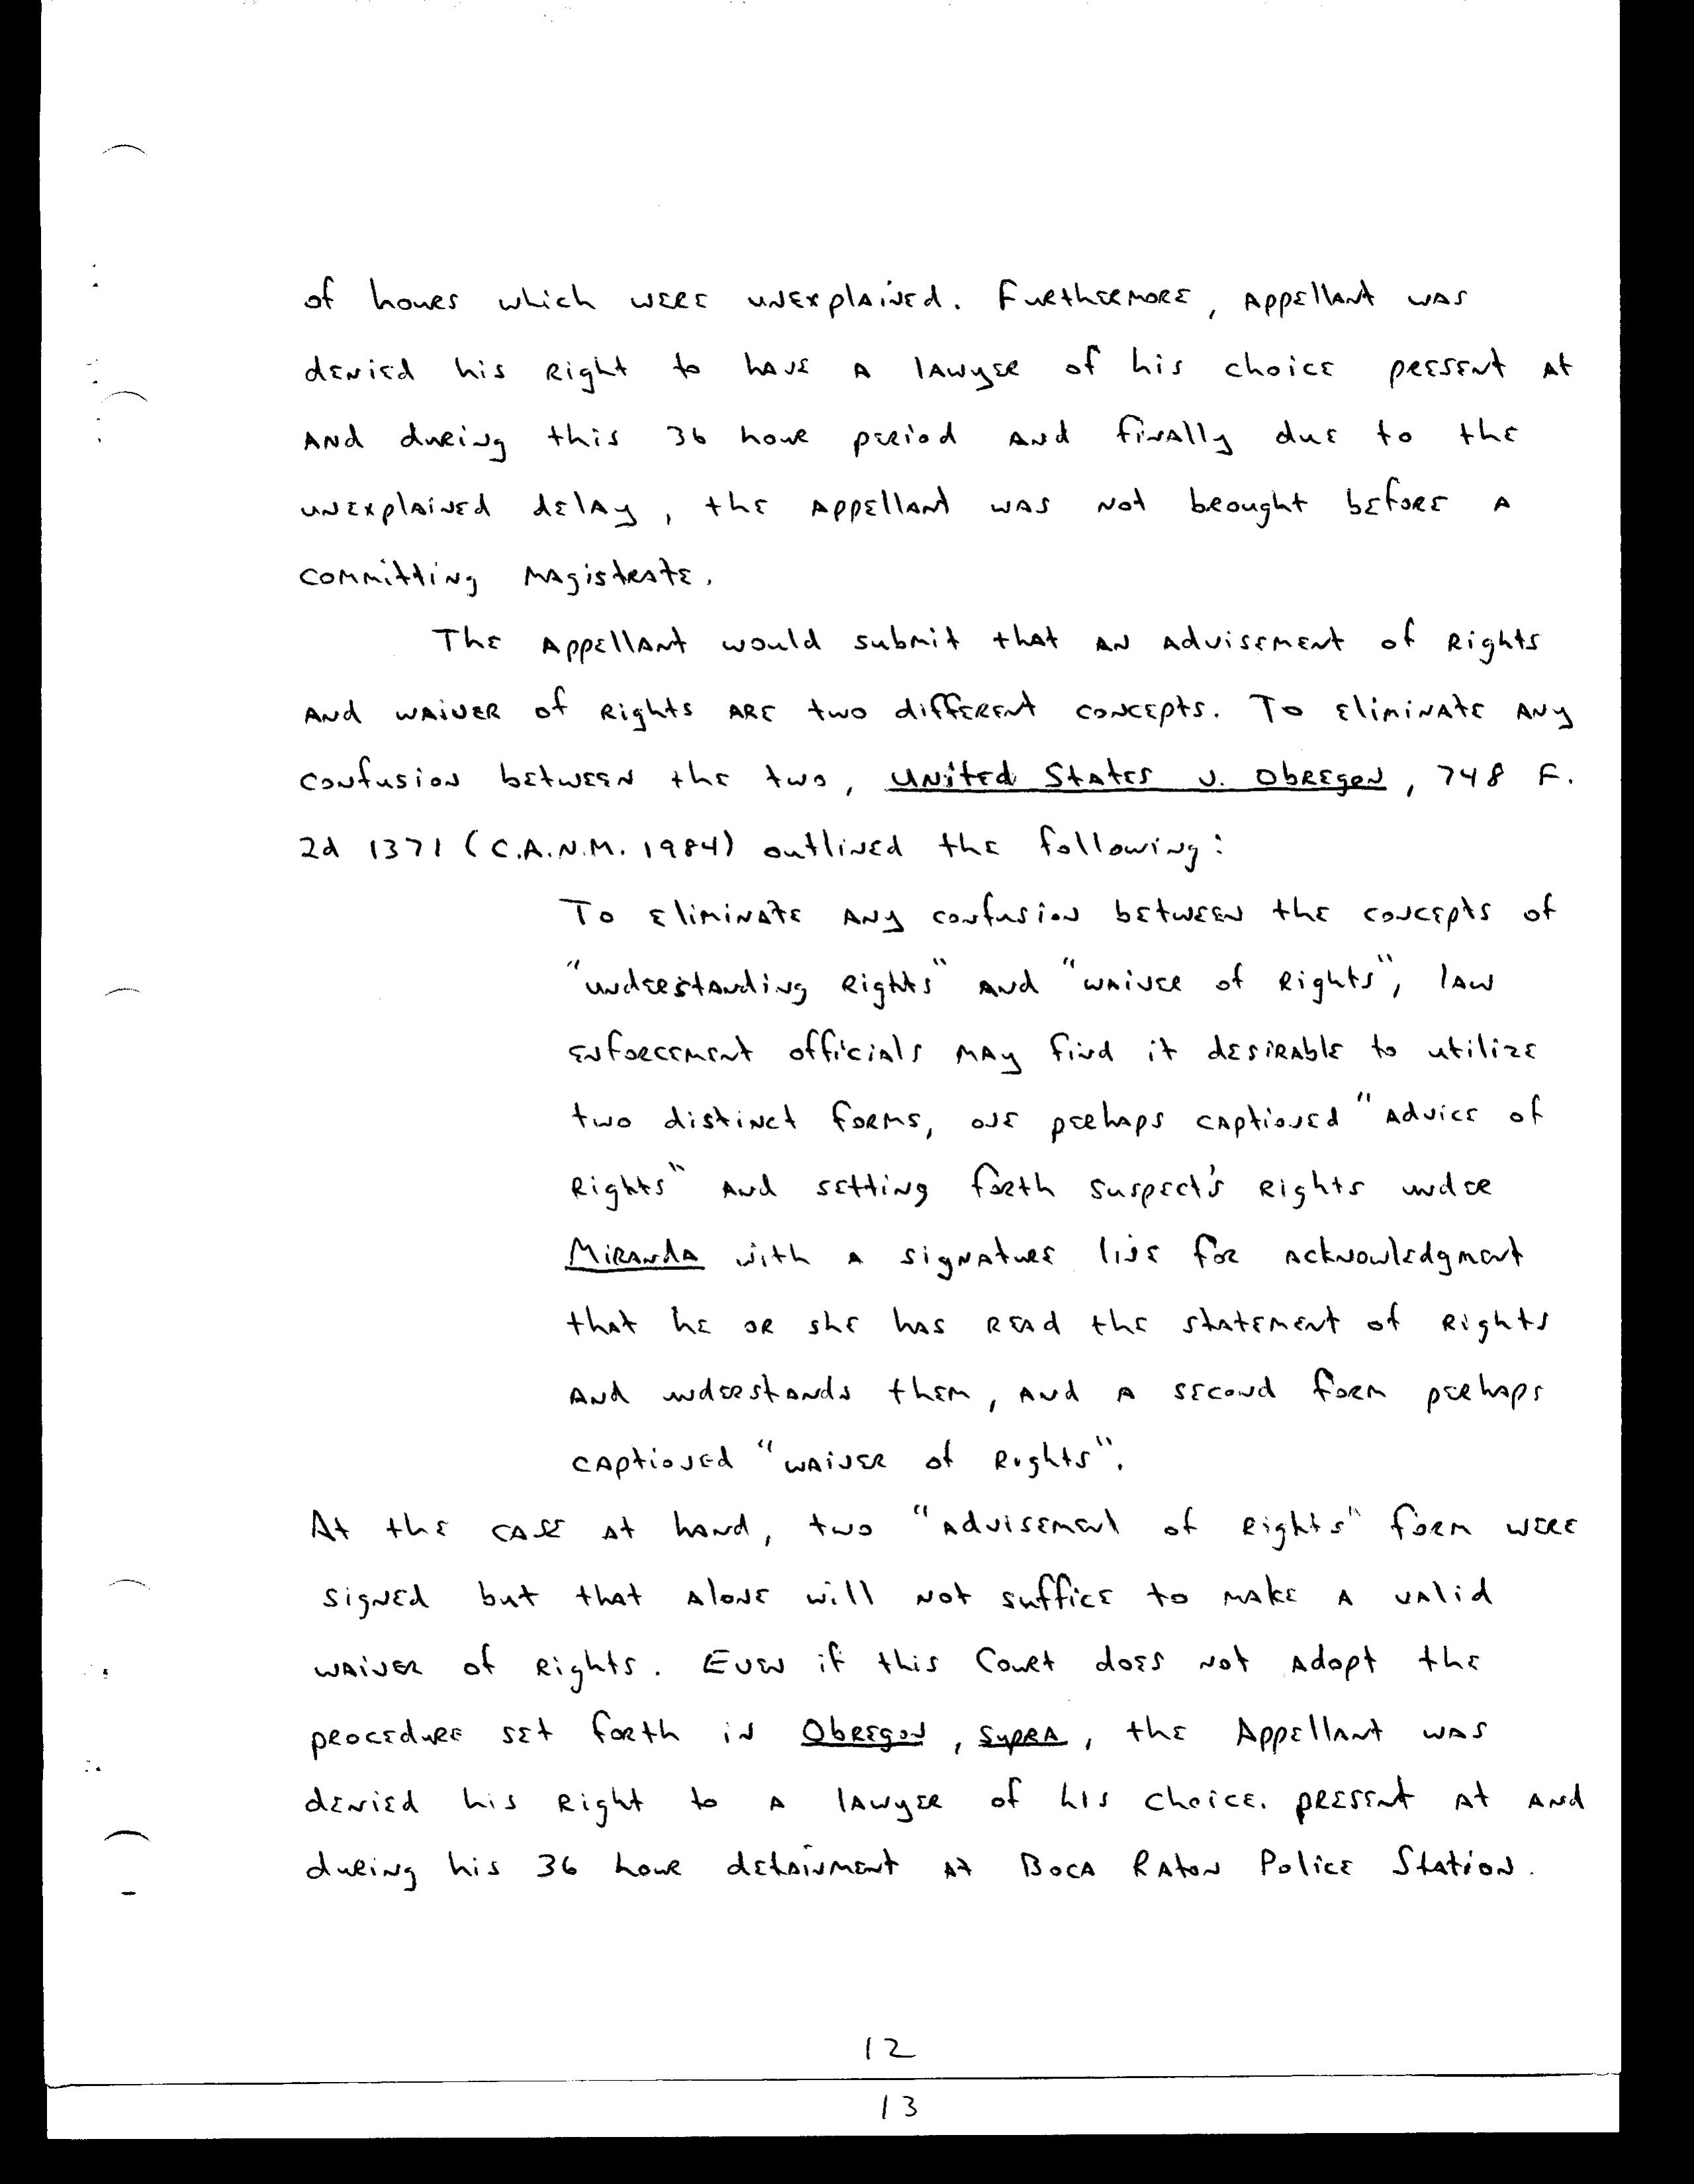 of hours which were unexplained. Furthermore, Appellant was
denied his right to have a lawyer of his choice present at
and during this 36 hour period and finally due to the
unexplained delay, the Appellant was not brought before a
committing magistrate.
The Appellant would submit that an advisement of rights
and waiver of rights are two different concepts. To eliminate any
confusion between the two, United States v. Obregon, 748 F.
2d 1371 (C.A.N.M. 1984) outlined the following:
To eliminate any confusion between the concepts of
"understanding rights" and "waiver of rights", law
enforcement officials may find it desirable to utilize
two distinct forms, one perhaps captioned "Advice of
Rights" and setting forth suspect's rights under
Miranda with a signature line for acknowledgment
that he or she has read the statement of rights
and understands them, and a second form perhaps
captioned "waiver of Rights".
At the case at hand, two "advisement of rights" form were
signed but that alone will not suffice to make a valid
waiver of rights. Even if this Court does not adopt the
procedure set forth in Obregon, supra, the Appellant was
denied his right to a lawyer of his choice. present at and
during his 36 hour detainment at Boca Raton Police Station.
12
13